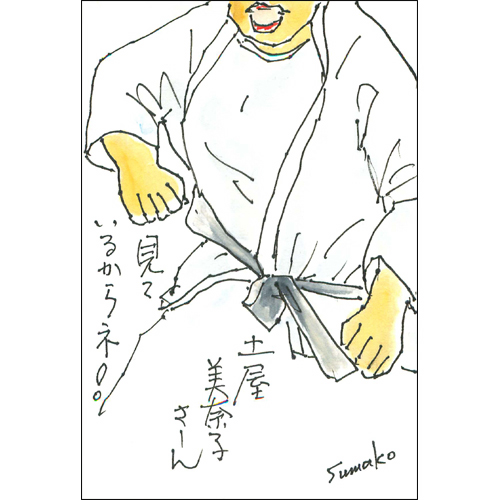 見て
いるからネ!!
土屋
美奈子
さーん
Sumako